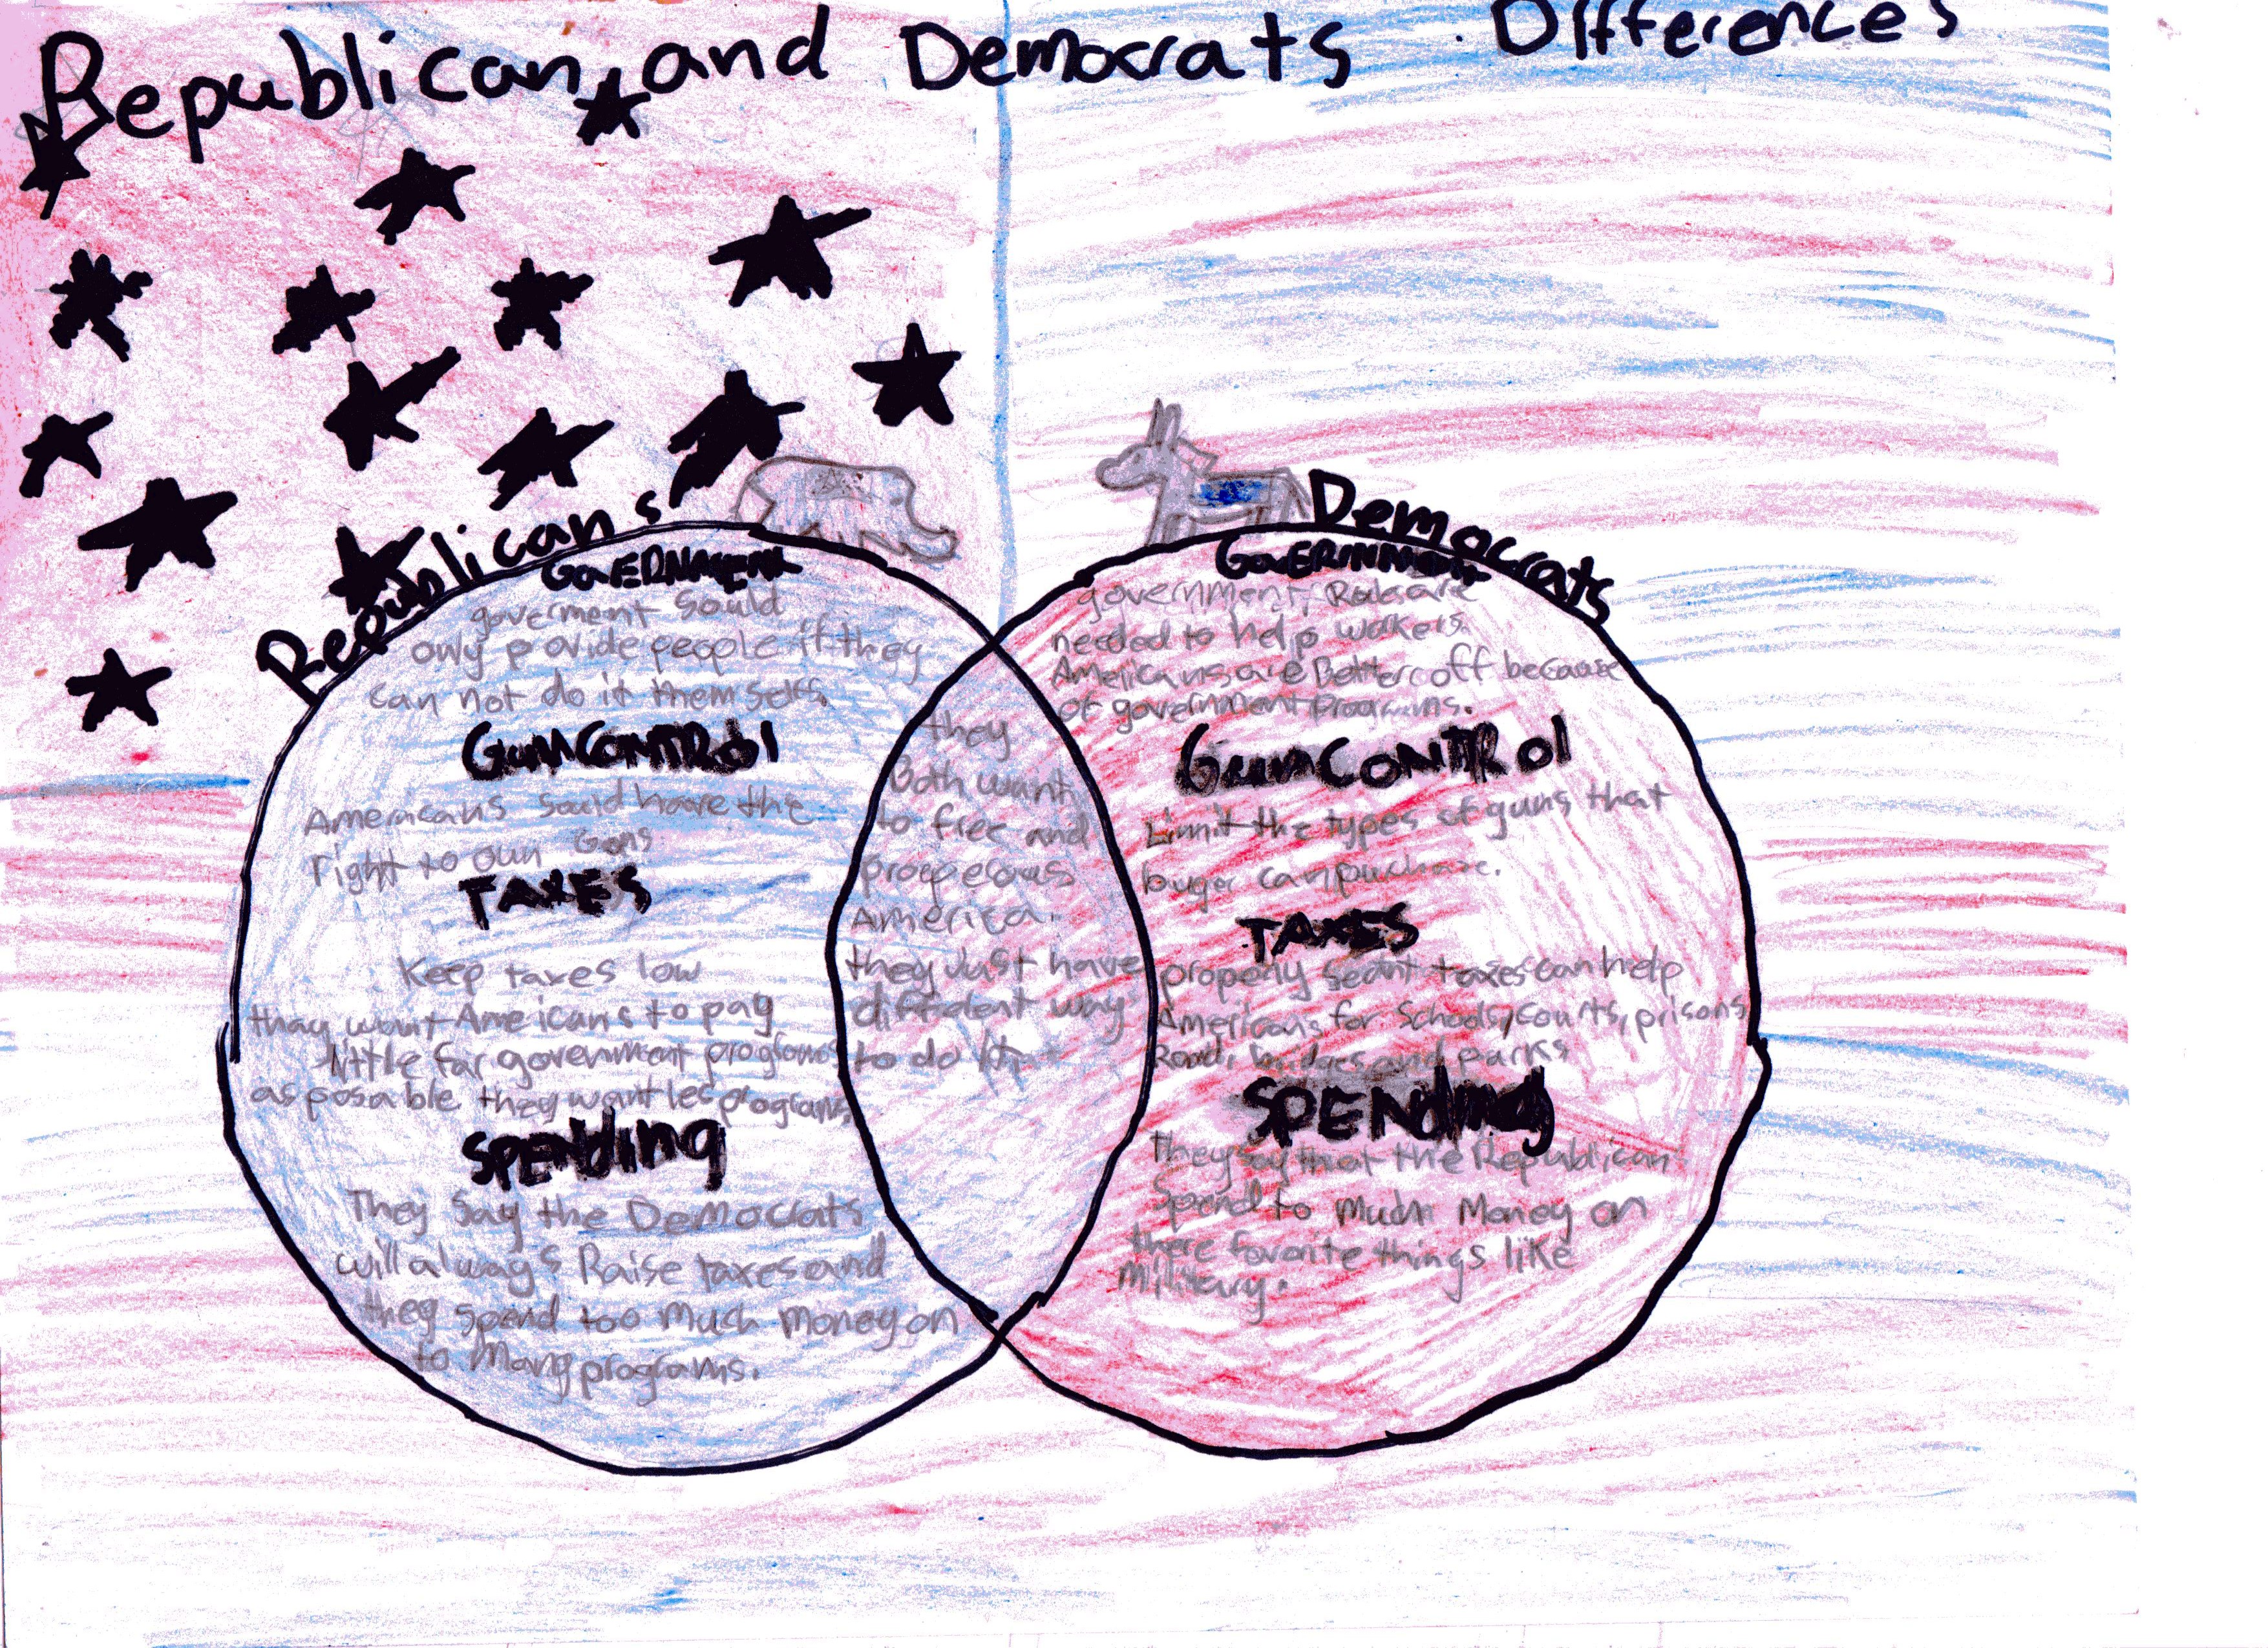 Republican and Democrats Differences
Republicans
GOVERNMENT
goverment sould
only provide people if they
can not do it themselfs.
GUNCONTROl
Americans sould have the
right to own Guns
TAXES
Keep taxes low
thay want Americans to pay
little for government programs
as posable they want les programs
SPENding
They Say the Democrats
will always Raise taxes and
they spend too much money on
to many programs.
they
Both want
to free and
prosperous
America.
they Just have
different way
to do it
Democrats
GOVERNMENT
government. Rules are
needed to help workers.
Americans are Better off because
of government Programs.
GunCONTROl
Limit the types of guns that
buyer can puchase.
TAXES
properly seant taxes can help
Americans for Schools, courts, prisons
Road, bridges and parks
SPENding
They say that the Republican
Spend to much Money on
there favorite things like
military.